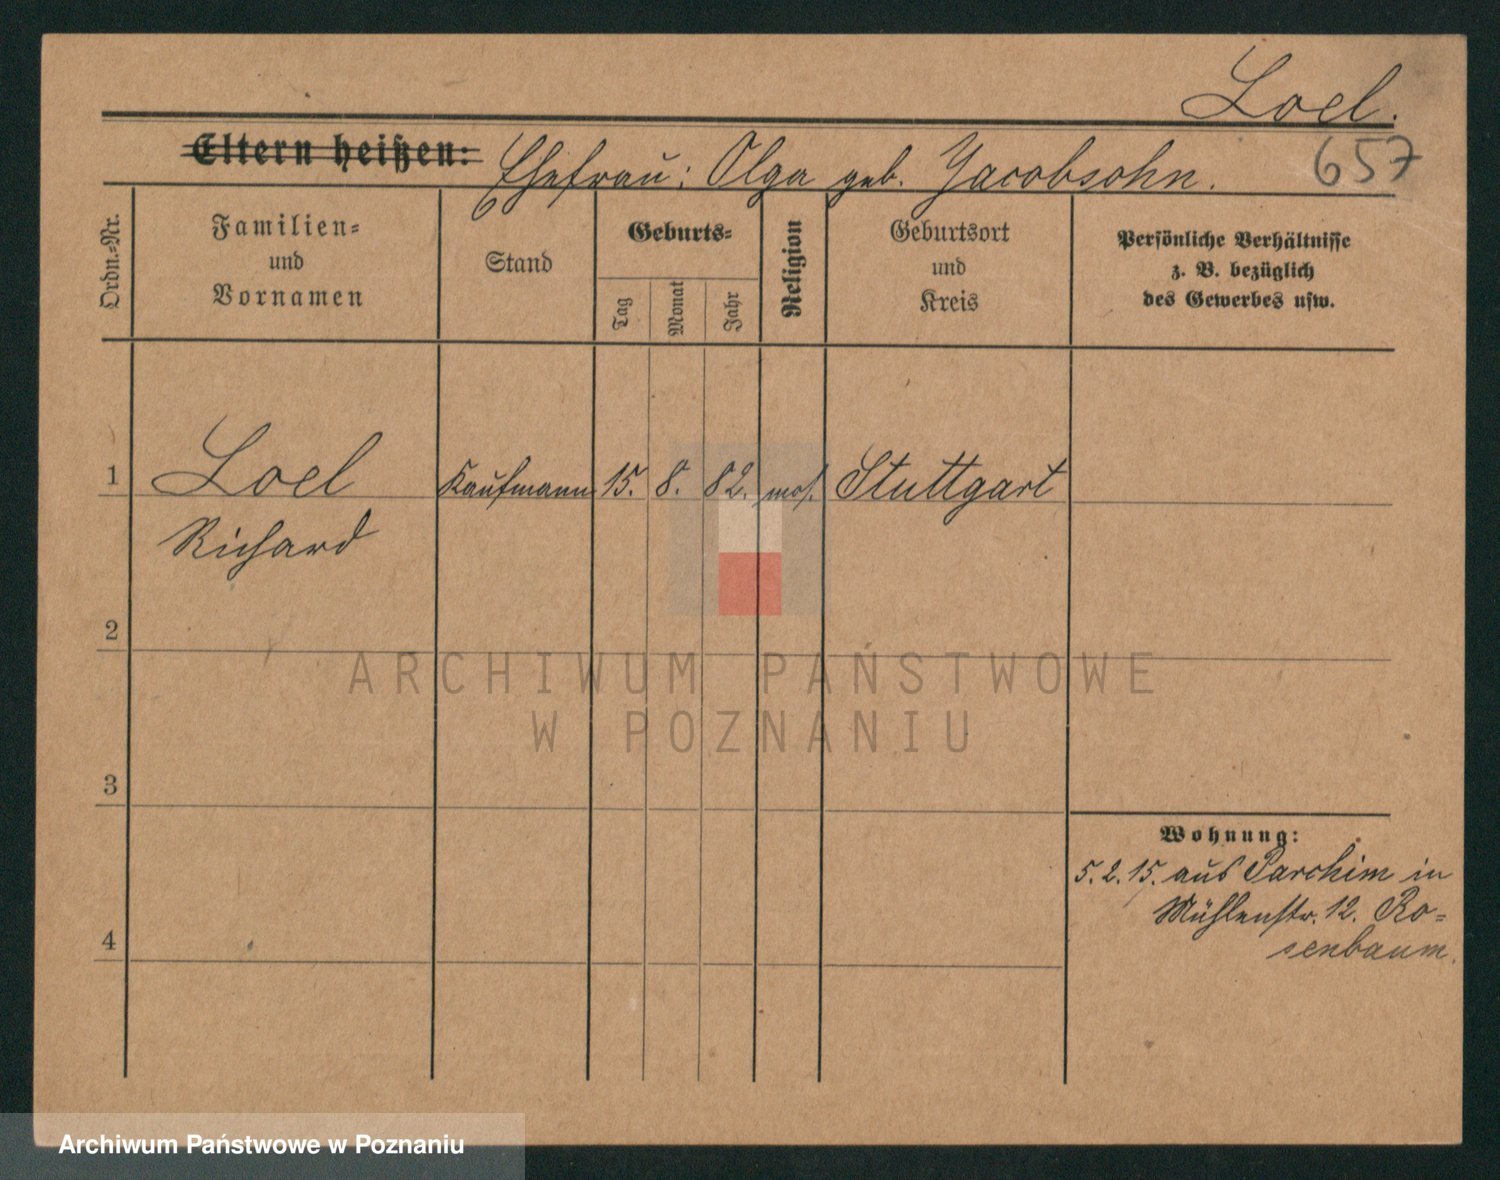 Loel.
Eltern heißen: Ehefrau: Olga geb. Jacobsohn.
657
Ordn.-Nr.
Familien-
und
Vornamen
Stand
Geburts-
Tag
Monat
Jahr
Religion
Geburtsort
und
Kreis
Persönliche Verhältnisse
z. B. bezüglich
des Gewerbes usw.
1 Loel Kaufmann 15. 8. 82. mos. Stuttgart
Richard
2
ARCHIWUM PAŃSTWOWE
W POZNANIU
3
Wohnung:
5.2.15. aus Parchim in
Mühlenstr. 12. Ro=
senbaum.
4
Archiwum Państwowe w Poznaniu